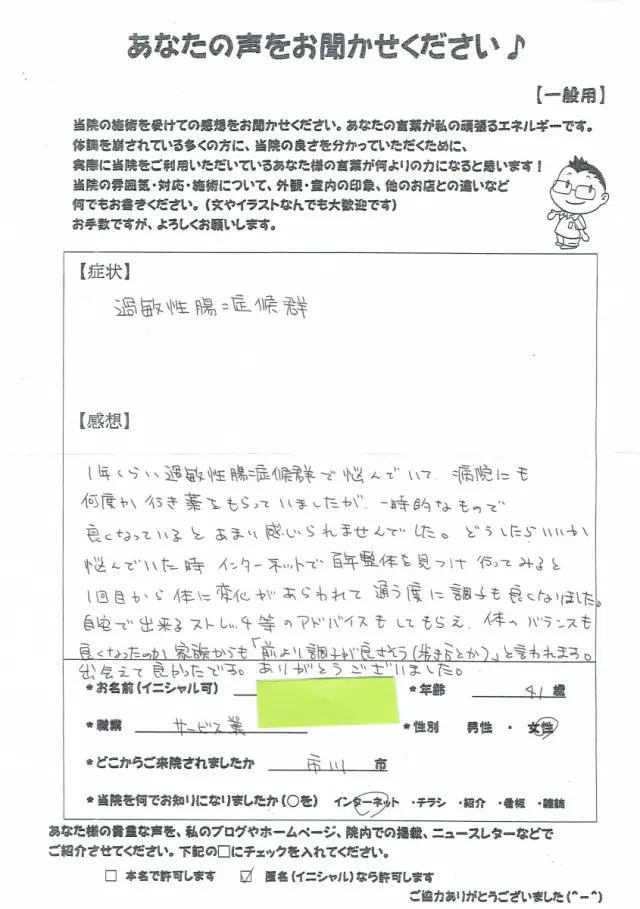 あなたの声をお聞かせください♪
【一般用】
当院の施術を受けての感想をお聞かせください。あなたの言葉が私の頑張るエネルギーです。
体調を崩されている多くの方に、当院の良さを分かっていただくために、
実際に当院をご利用いただいているあなた様の言葉が何よりの力になると思います！
当院の雰囲気・対応・施術について、外観・室内の印象、他のお店との違いなど
何でもお書きください。（文やイラストなんでも大歓迎です）
お手数ですが、よろしくお願いします。
【症状】
過敏性腸症候群
【感想】
1年くらい過敏性腸症候群で悩んでいて、病院にも
何度か行き薬をもらっていましたが、一時的なもので
良くなっているとあまり感じられませんでした。どうしたらいいか
悩んでいた時インターネットで百年整体を見つけ行ってみると
1回目から体に変化があらわれて通う度に調子も良くなりました。
自宅で出来るストレッチ等のアドバイスもしてもらえ、体のバランスも
良くなったのか家族からも「前より調子が良さそう(歩き方とか)」と言われます。
出会えて良かったです。ありがとうございました。
*お名前(イニシャル可)
*年齢 41 歳
*職業 サービス業
*性別 男性 ・ 女性
*どこからご来院されましたか 市川 市
*当院を何でお知りになりましたか(○を) インターネット ・チラシ ・紹介 ・看板 ・雑誌
あなた様の貴重な声を、私のブログやホームページ、院内での掲載、ニュースレターなどで
ご紹介させてください。下記の□にチェックを入れてください。
□ 本名で許可します ☑ 匿名(イニシャル)なら許可します
ご協力ありがとうございました(^-^)